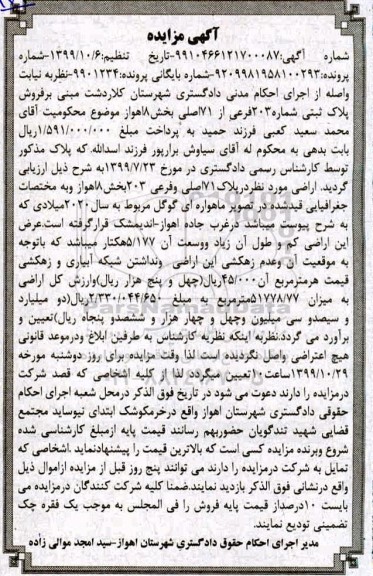 آگهی مزایده
شماره آگهی:۹۹۱۰۴۶۶۱۲۱۷۰۰۰۸۷-تاریخ تنظیم:۱۳۹۹/۱۰/۶-شماره
پرونده:۹۲۰۹۹۸۱۹۵۸۱۰۰۲۹۳-شماره بایگانی پرونده:۹۹۰۱۲۳۴-نظربه نیابت
واصله از اجرای احکام مدنی دادگستری شهرستان کلاردشت مبنی برفروش
پلاک ثبتی شماره۲۰۳فرعی از ۷۱اصلی بخش۸اهواز موضوع محکومیت آقای
محمد سعید کعبی فرزند حمید به پرداخت مبلغ ۱/۵۹۱/۰۰۰/۰۰۰ریال
بابت بدهی به محکوم له آقای سیاوش برارپور فرزند اسدالله که پلاک مذکور
توسط کارشناس رسمی دادگستری در مورخ ۱۳۹۹/۷/۲۳به شرح ذیل ارزیابی
گردید. اراضی مورد نظردرپلاک۷۱اصلی وفرعی ۲۰۳بخش۸اهواز وبه مختصات
جغرافیایی قیدشده در تصویر ماهواره ای گوگل مربوط به سال۲۰۲۰میلادی که
به شرح پیوست میباشد درغرب جاده اهواز-اندیمشک قرارگرفته است.عرض
این اراضی کم و طول آن زیاد ووسعت آن ۵/۱۷۷هکتار میباشد که باتوجه
به موقعیت آن وعدم زهکشی این اراضی ونداشتن شبکه آبیاری و زهکشی
قیمت هرمترمربع آن۴۵/۰۰۰ریال(چهل و پنج هزار ریال)وارزش کل اراضی
به میزان ۵۱۷۷۸/۷۷مترمربع به مبلغ ۲/۳۳۰/۰۴۴/۶۵۰ریال(دو میلیارد
و سیصدو سی میلیون وچهل و چهار هزار و ششصدو پنجاه ریال)تعیین و
برآورد می گردد.نظربه اینکه نظریه کارشناس به طرفین ابلاغ ودرموعد قانونی
هیچ اعتراضی واصل نگردیده است لذا وقت مزایده برای روز دوشنبه مورخه
۱۳۹۹/۱۰/۲۹ساعت۱۰تعیین میگردد لذا از کلیه اشخاصی که قصد شرکت
درمزایده را دارند دعوت می شود در تاریخ فوق الذکر درمحل شعبه اجرای احکام
حقوقی دادگستری شهرستان اهواز واقع درخرمکوشک ابتدای نیوساید مجتمع
قضایی شهید تندگویان حضوربهم رسانند قیمت پایه ازمبلغ کارشناسی شده
شروع وبرنده مزایده کسی است که بالاترین قیمت را پیشنهادنماید.اشخاصی که
تمایل به شرکت درمزایده را دارند می توانند پنج روز قبل از مزایده ازاموال ذیل
واقع درنشانی فوق الذکر بازدید نمایند.ضمنا کلیه شرکت کنندگان درمزایده می
بایست ۱۰درصداز قیمت پایه فروش را فی المجلس به موجب یک فقره چک
تضمینی تودیع نمایند.
مدیر اجرای احکام حقوق دادگستری شهرستان اهواز-سید امجد موالی زاده